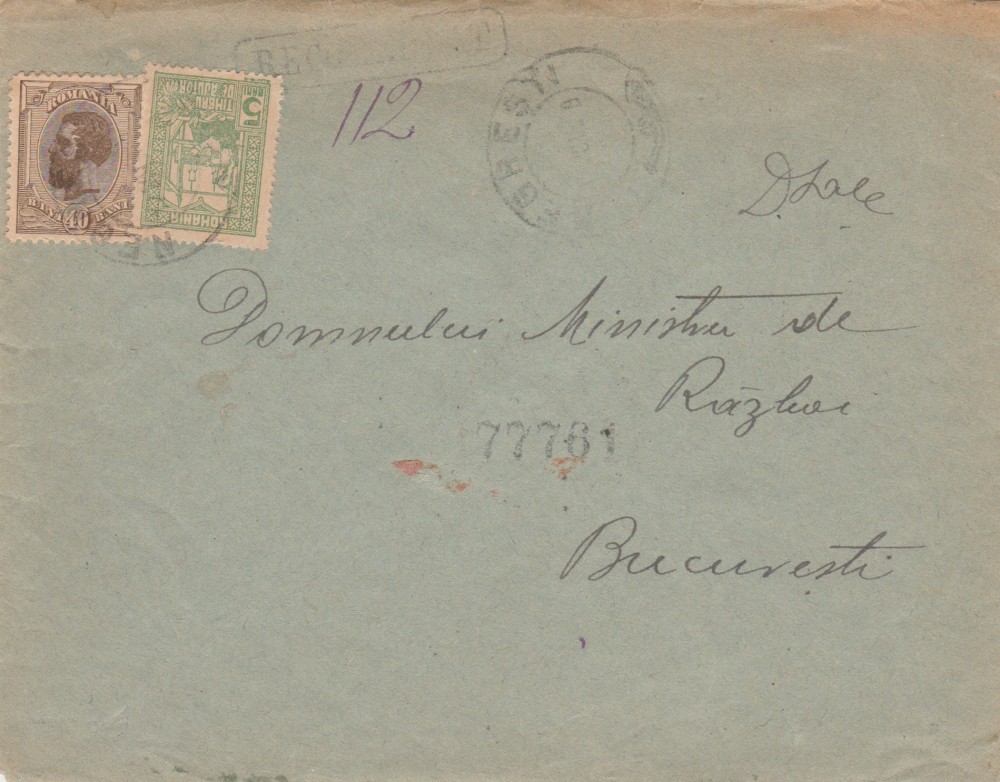 ROMANIA
BANI 40 BANI
5 BANI
TIMBRU
DE AJUTOR
ROMANIA
112
D.Sale
Domnului Ministru de
Război
77761
București